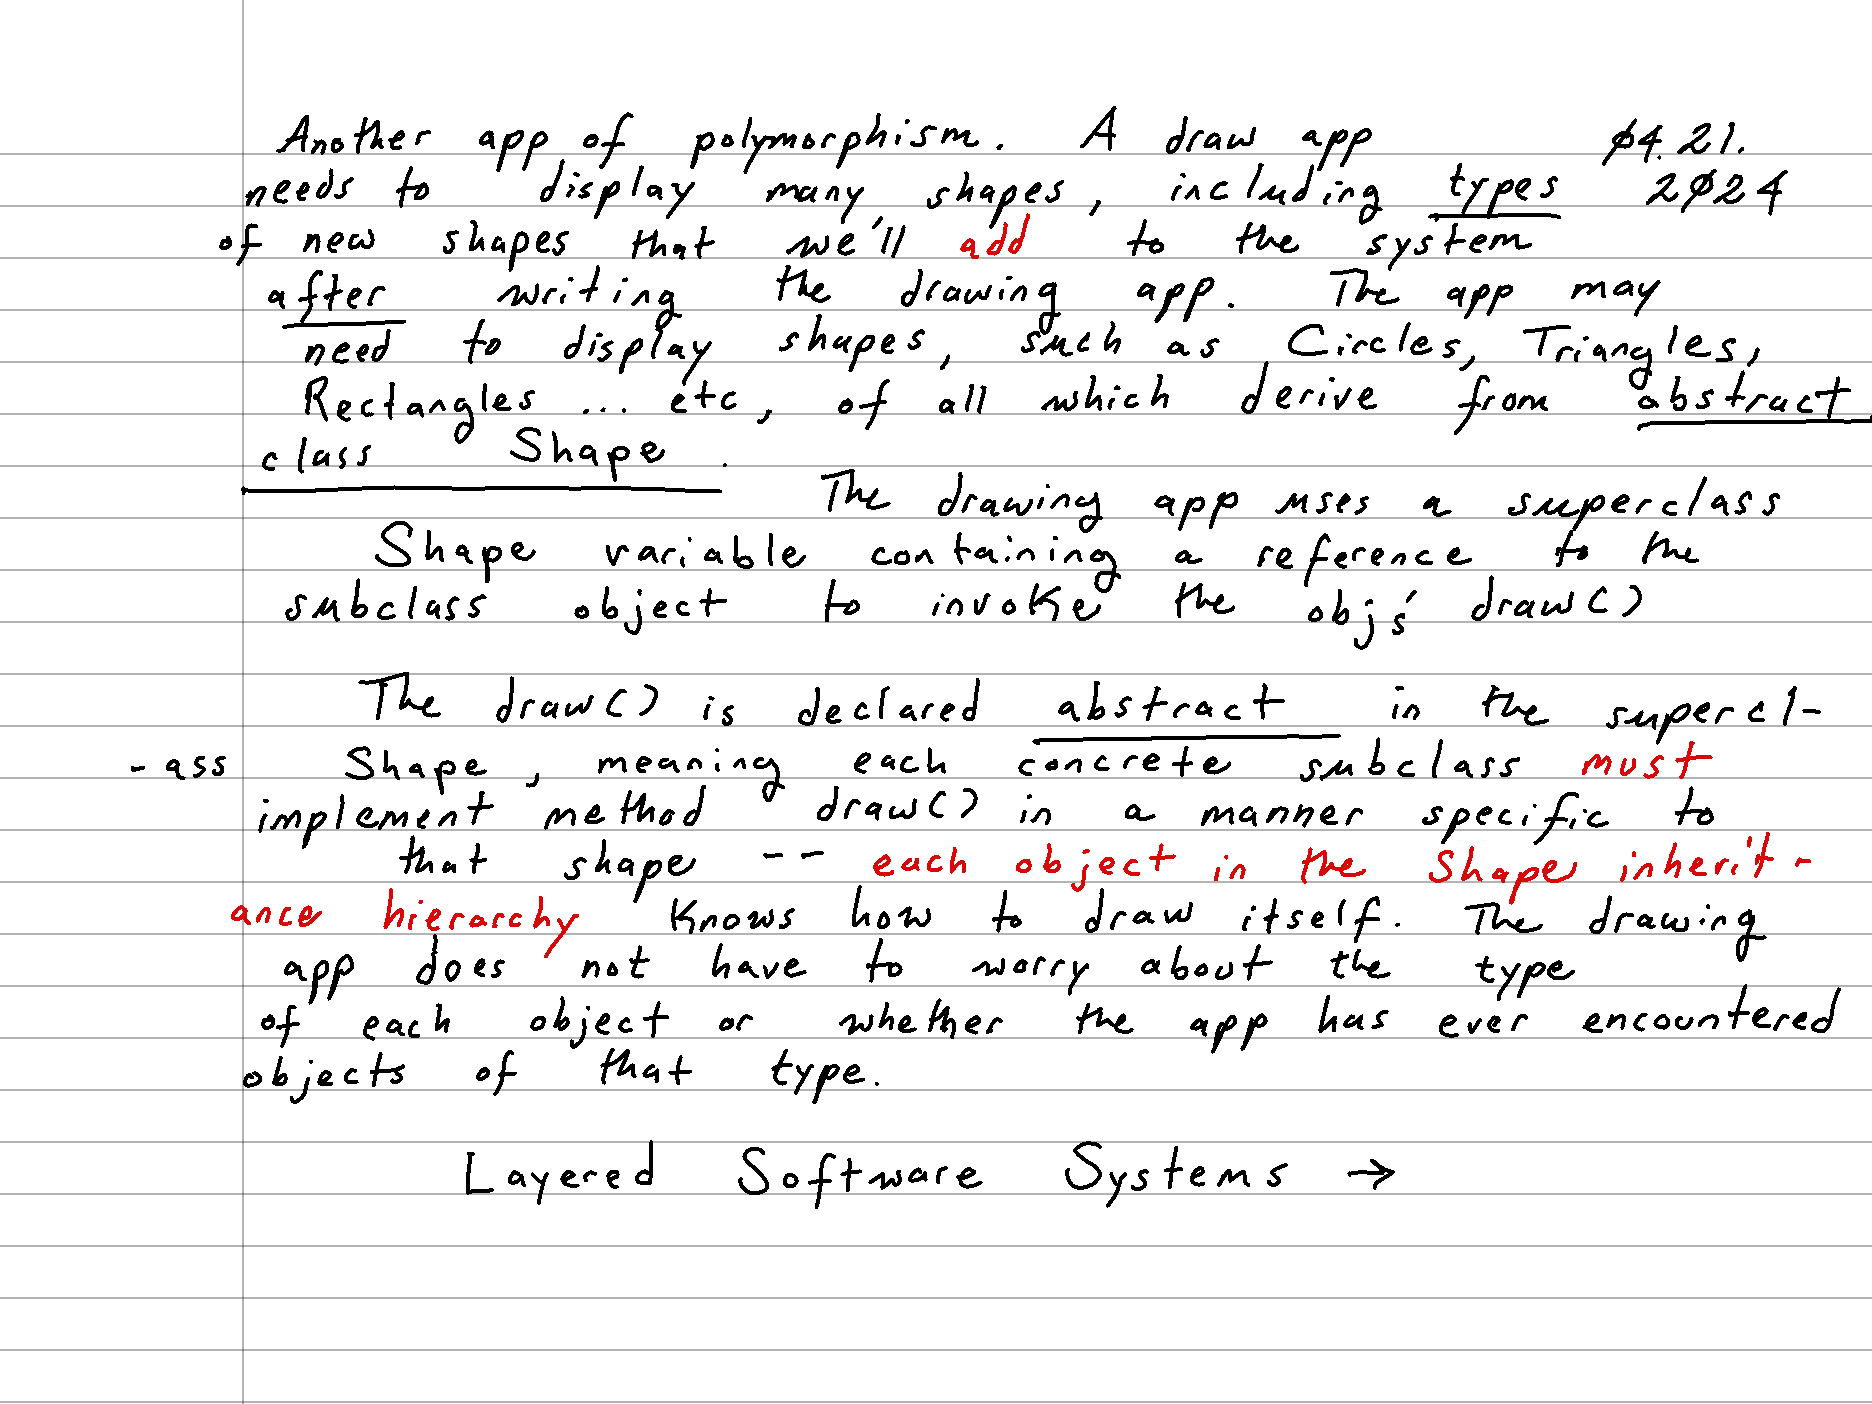 Another app of polymorphism. A draw app ø4.21.
needs to display many shapes, including types 2ø24
of new shapes that we'll add to the system
after writing the drawing app. The app may
need to display shapes, such as Circles, Triangles,
Rectangles ... etc, of all which derive from abstract
class Shape.
The drawing app uses a superclass
Shape variable containing a reference to the
subclass object to invoke the objs' draw()
The draw() is declared abstract in the supercl-
-ass Shape, meaning each concrete subclass must
implement method draw() in a manner specific to
that shape -- each object in the Shape inherit-
ance hierarchy knows how to draw itself. The drawing
app does not have to worry about the type
of each object or whether the app has ever encountered
objects of that type.
Layered Software Systems →